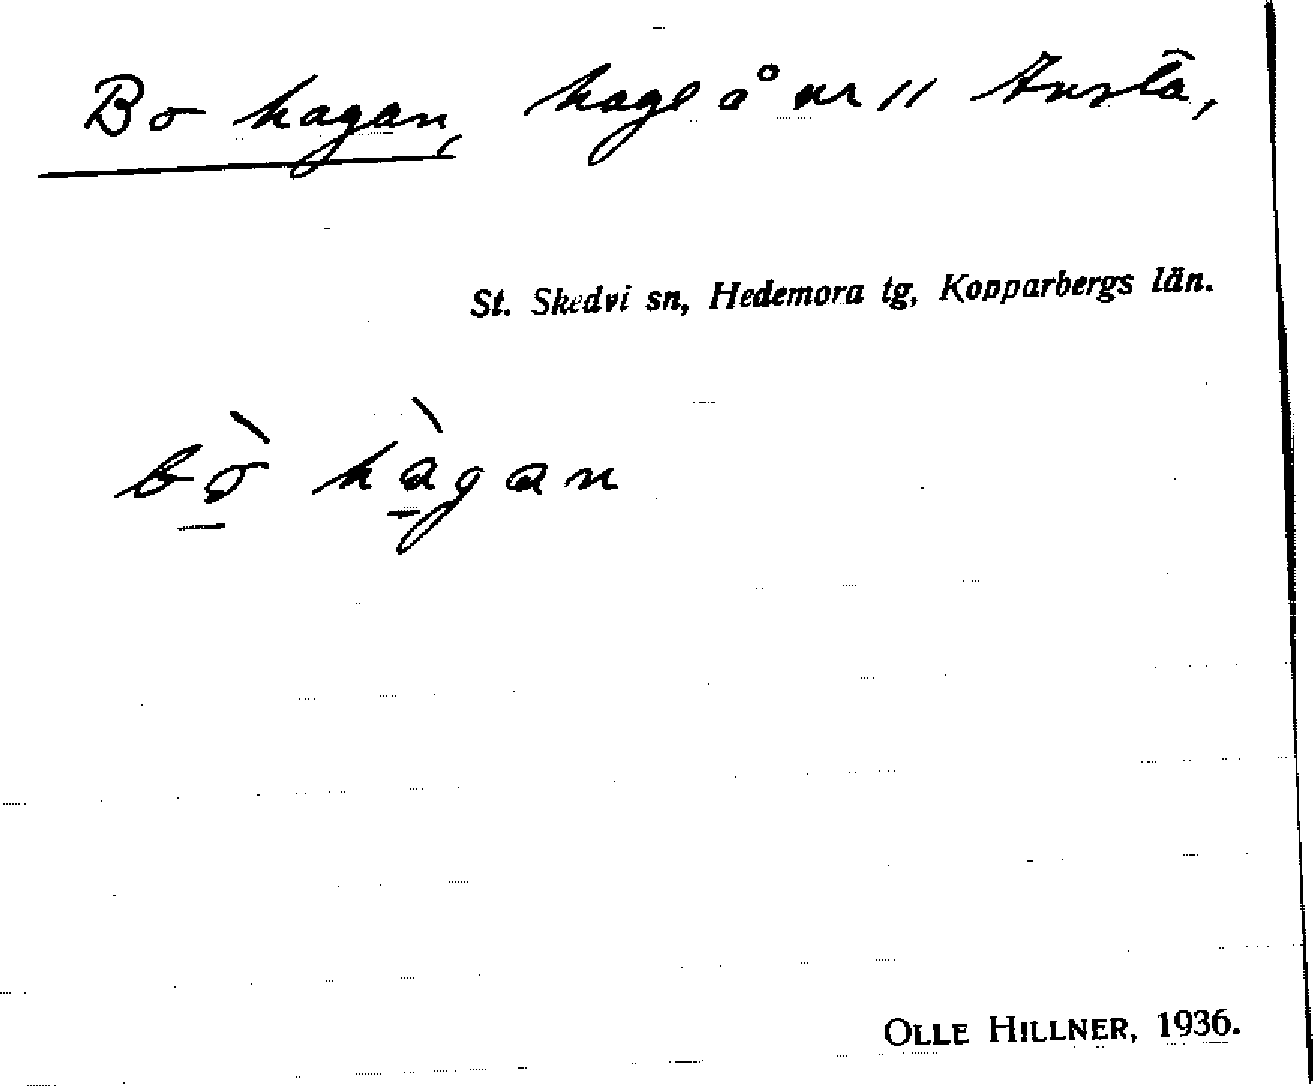 Bo hagan, hage å nr 11 Ansta,
St. Skedvi sn, Hedemora tg, Kopparbergs län.
bò hàgan
OLLE HILLNER, 1936.